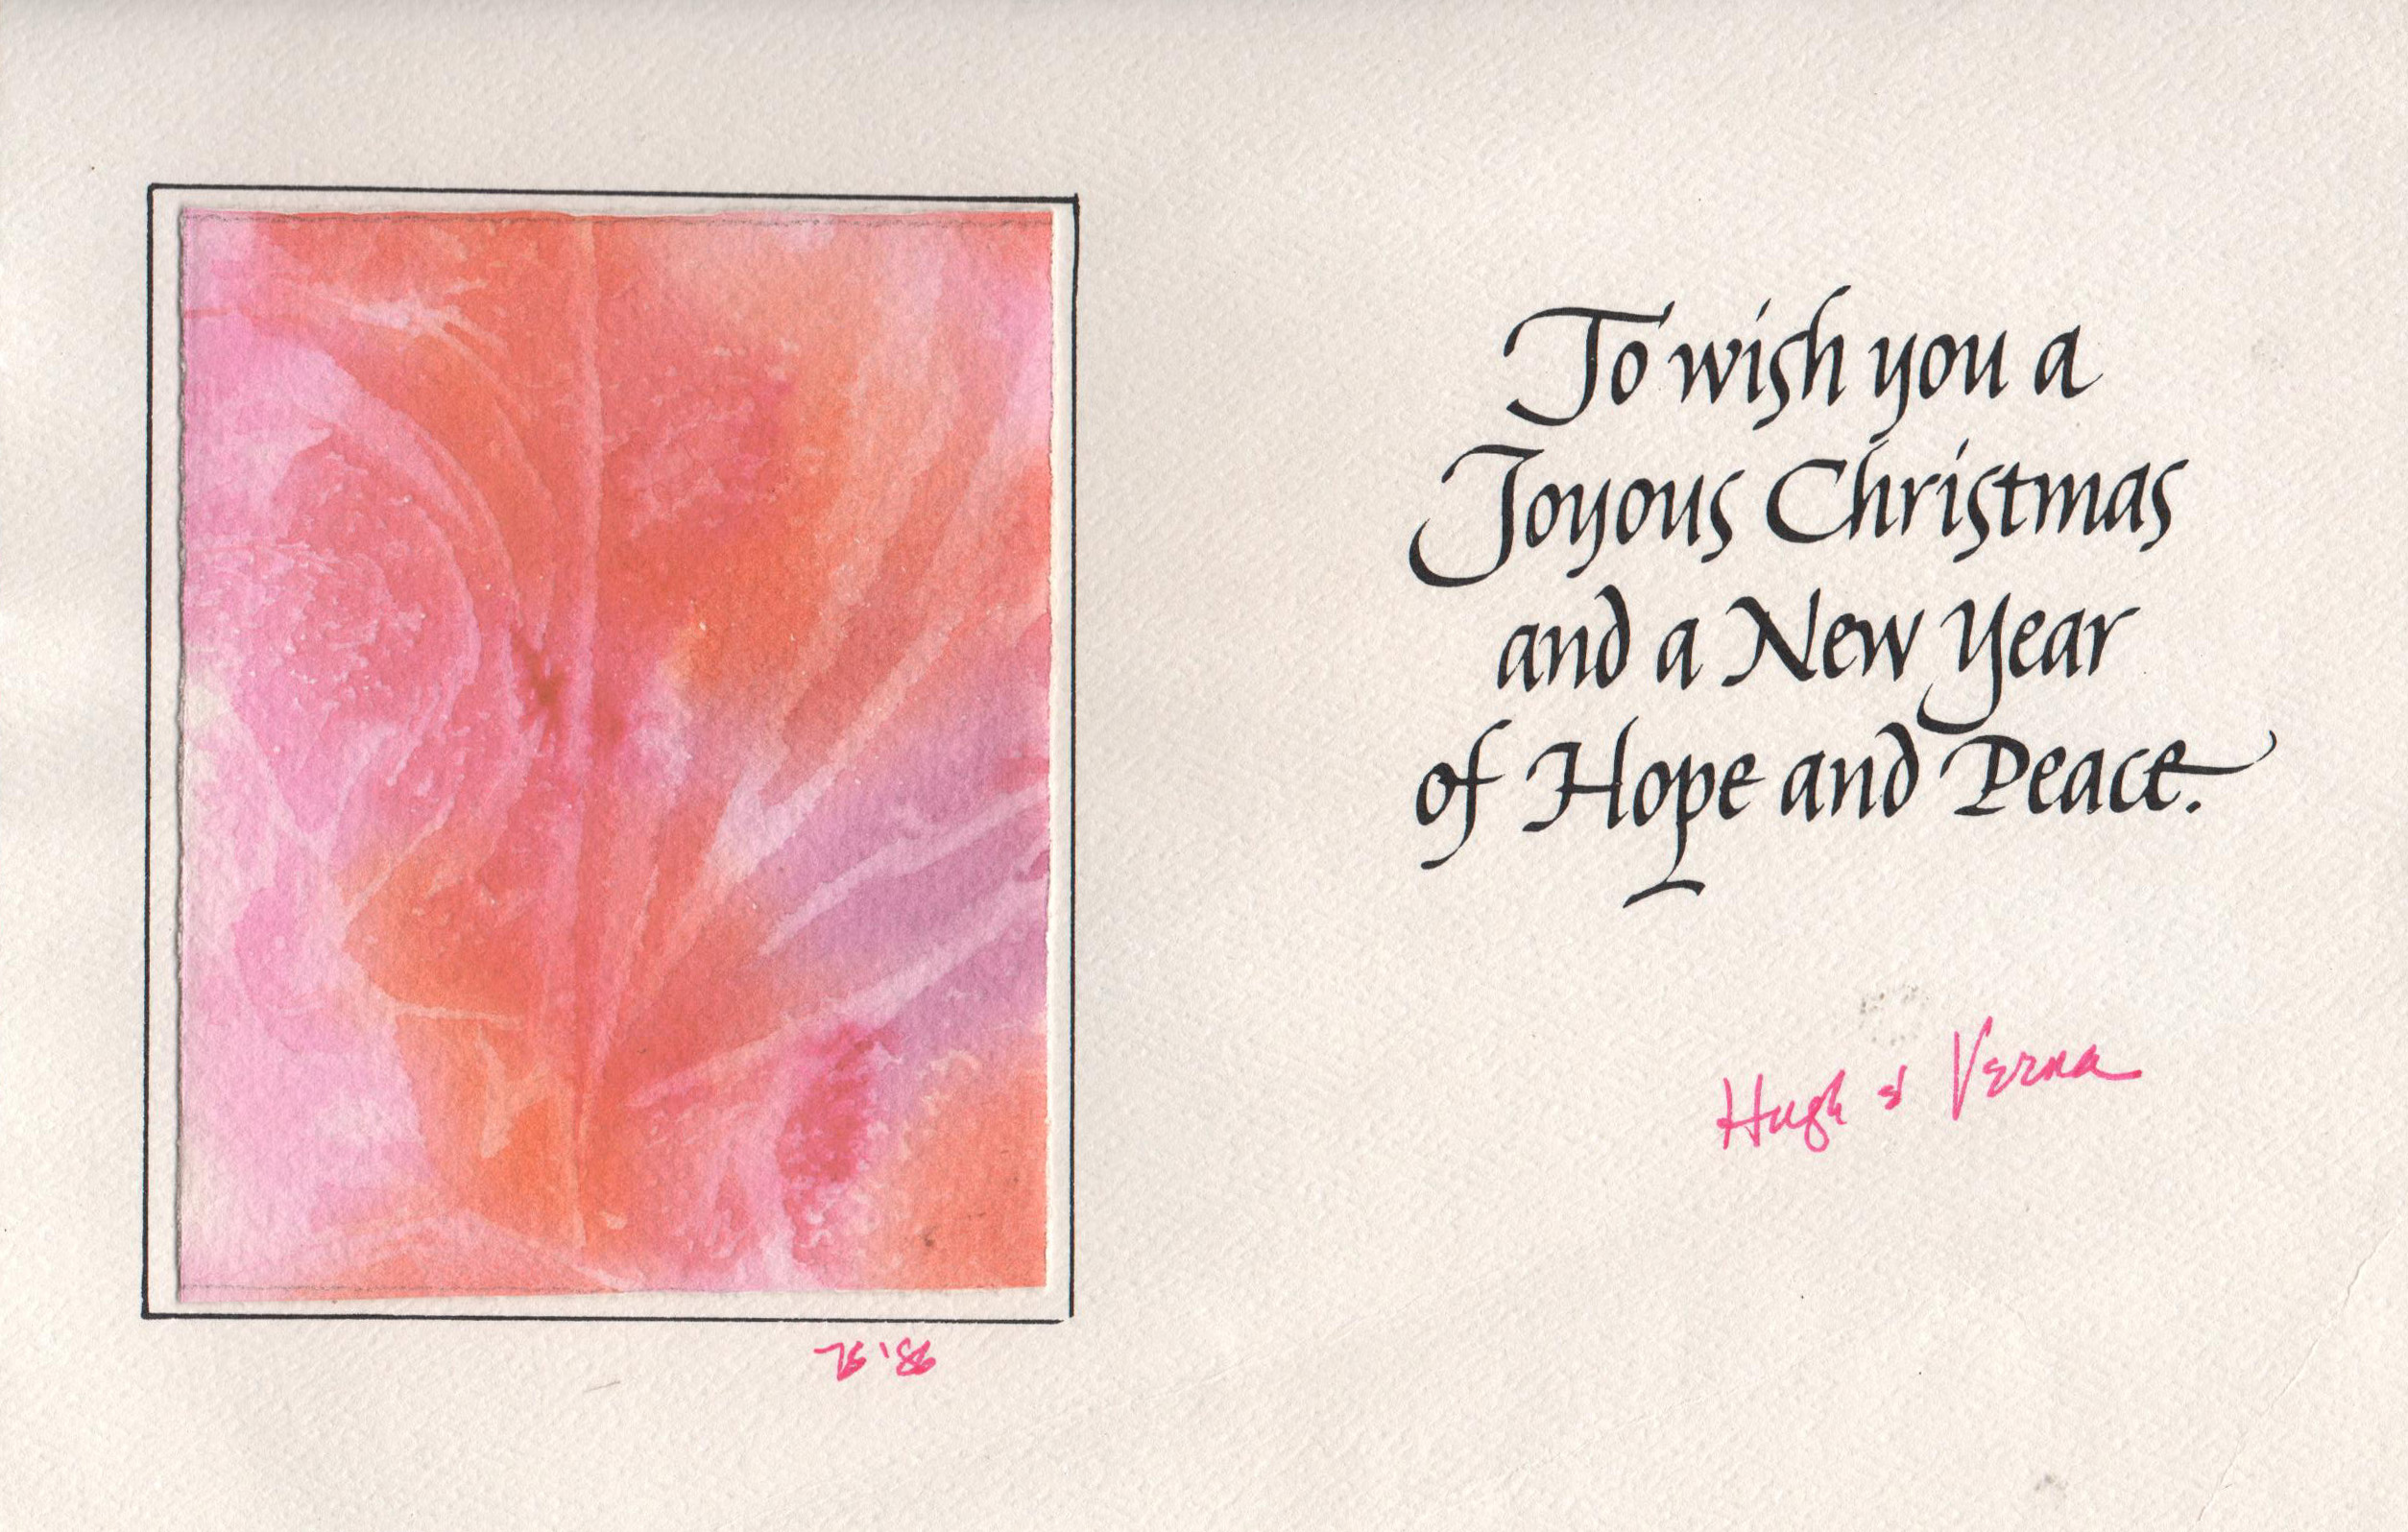 To wish you a
Joyous Christmas
and a New Year
of Hope and Peace.
Hugh & Verna